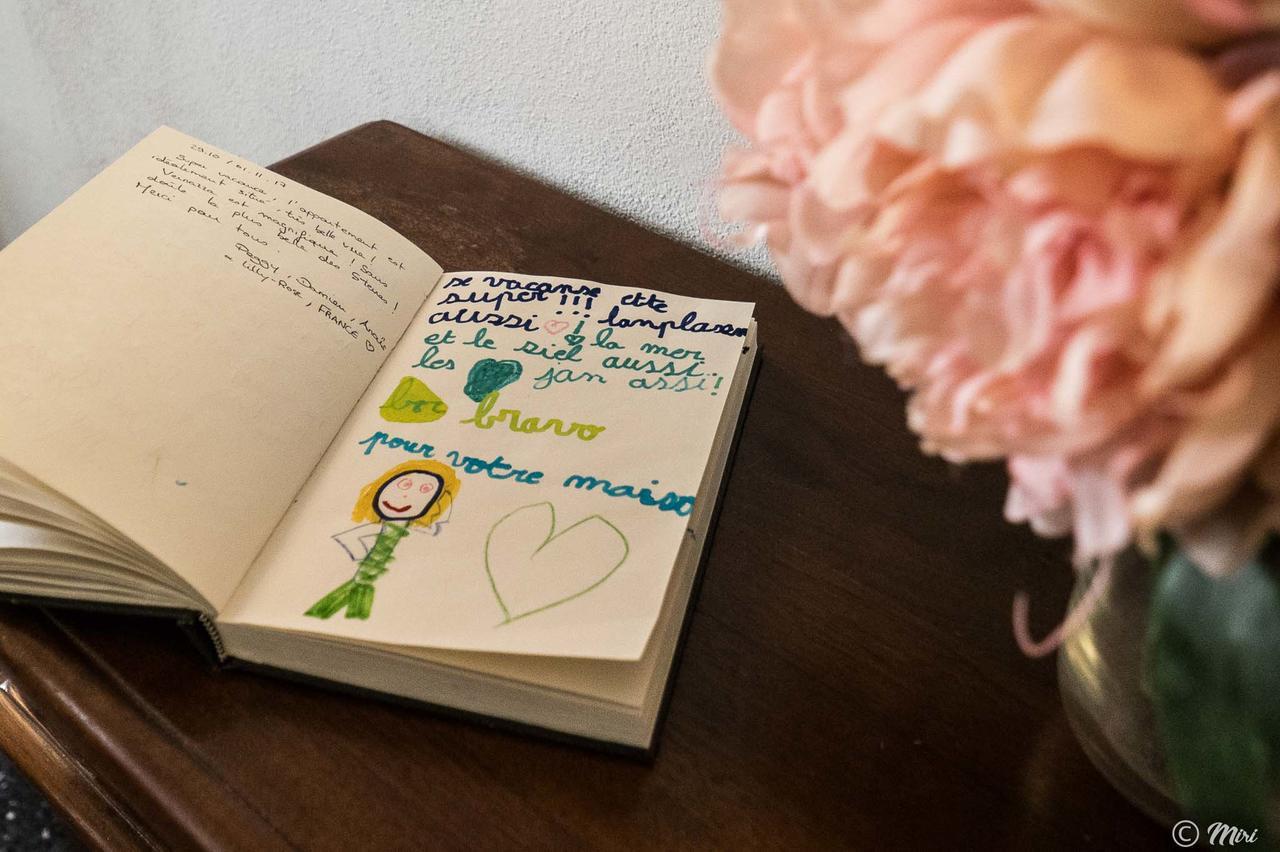 29.10 / 01.11.17
Super vacance, l'appartement est
idéalement situé, très belle vue!
Vernazza est magnifique! Sans
doute la plus belle des 5 terres!
Merci pour tous.
Peggy, Damien,
+ Lilly-Rose, FRANCE ♡
se vacanse ette
super!!! lanplasem
aussi ♡! la mer
et le siel aussi..
les jan assi!
bravo
pour votre maiso
© Miri